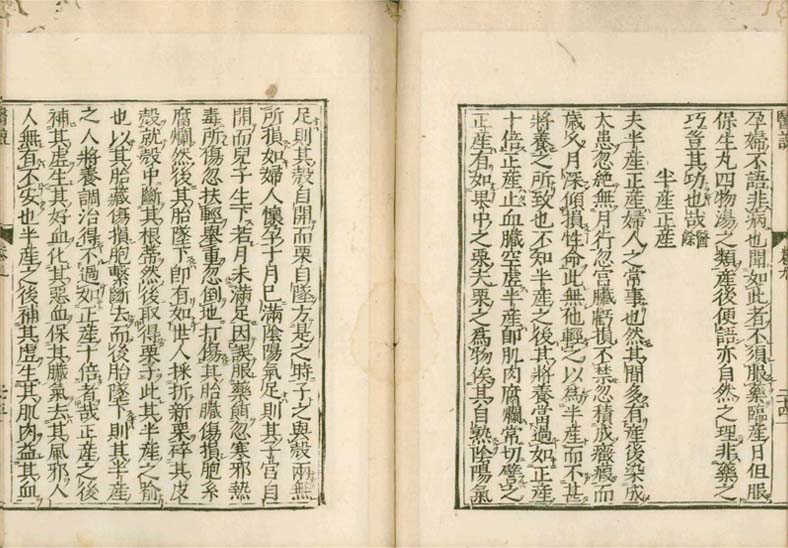 孕婦不語非病也聞如此者不須服藥臨産日但服
保生丸四物湯之類産後便語亦自然之理非藥之
巧豈其功也哉醫餘
半産正産
夫半産正産婦人之常事也然其間多有産後染成
大患忽絶無月行忽宮臓虧損不禁忽積成癥癥而
歳久月深傾損性命此無他輕之以為半産而不甚
將養之所致也不知半産之後其將養當過如正産
十倍正産止血臓空虚半産即肌肉腐爛常切譬之
正産有如果中之栗夫栗之為物俟其自熟陰陽氣
足則其殻自開而栗自墜方是之時子之與殻兩無
所損如婦人懷孕十月已滿陰陽氣足則其子宮自
開而兒子生下若月未滿足因誤服藥餌忽寒邪熱
毒所傷忽扶輕擧重忽倒地打傷其胎臓傷損胞系
腐爛然後其胎墜下即有如世人採折新栗碎其皮
殻就殻中斷其根蒂然後取得栗子此其半産之喩
也以其胎臓傷損胞繋斷去而後胎墜下則其半産
之人將養調治得不過如正産十倍者哉正産之後
補其虚生其好血化其惡血保其臓氣去其風邪人
人無有不安也半産之後補其虚生其肌肉益其血
醫説
卷九
二十四